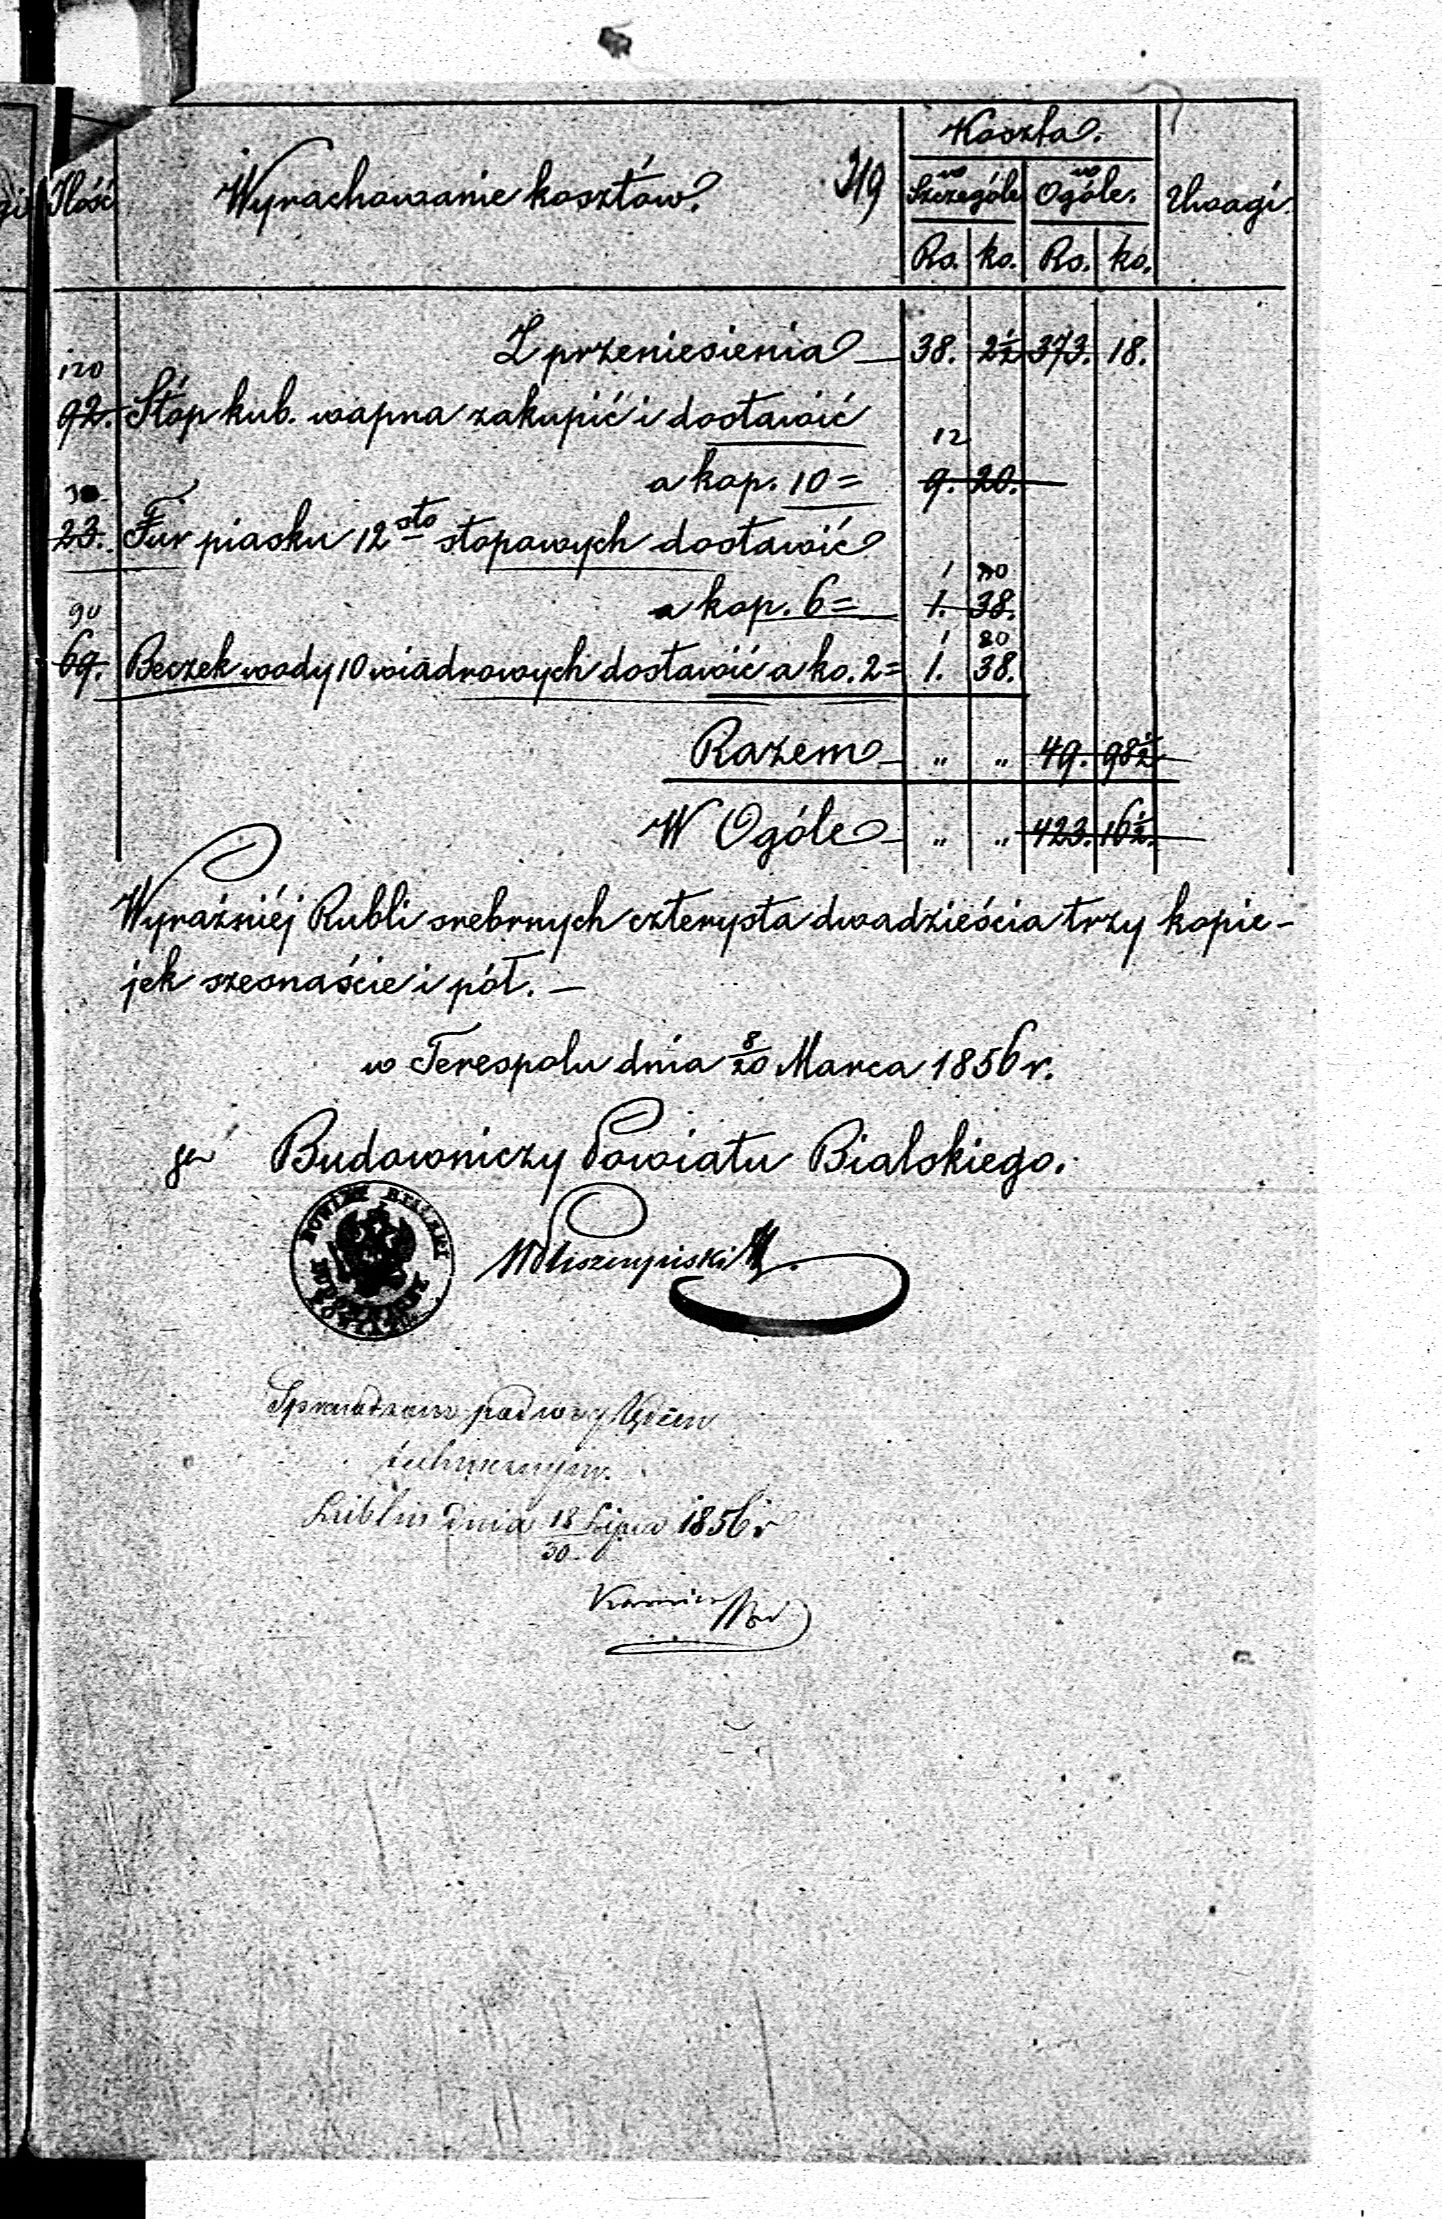 Koszta.
Ilość Wyrachowanie kosztów. 319 w Szczególe w Ogóle. Uwagi.
Rs. ko. Rs. ko.
Z przeniesienia — 38. 2½ 373. 18.
120
92. Stóp kub. wapna zakupić i dostawić
12
a kop. 10 = 9. 20.
30
23. Fur piasku 12sto stopowych dostawić
1 80
a kop. 6 = 1. 38.
90 1 80
69. Beczek wody 10 wiadrowych dostawić a ko. 2 = 1. 38.
Razem — „ „ 49. 98½
W Ogóle — „ „ 423. 16½.
Wyraźniéj Rubli srebrnych czterysta dwadzieścia trzy kopie-
jek szesnaście i pół. —
w Terespolu dnia 8/20 Marca 1856 r.
Budowniczy Powiatu Bialskiego.
POWIAT BIALSKI
BUDOWNICZY POWIATU
pod względem
technicznym.
Lublin dnia 18/30 Lipca 1856 r